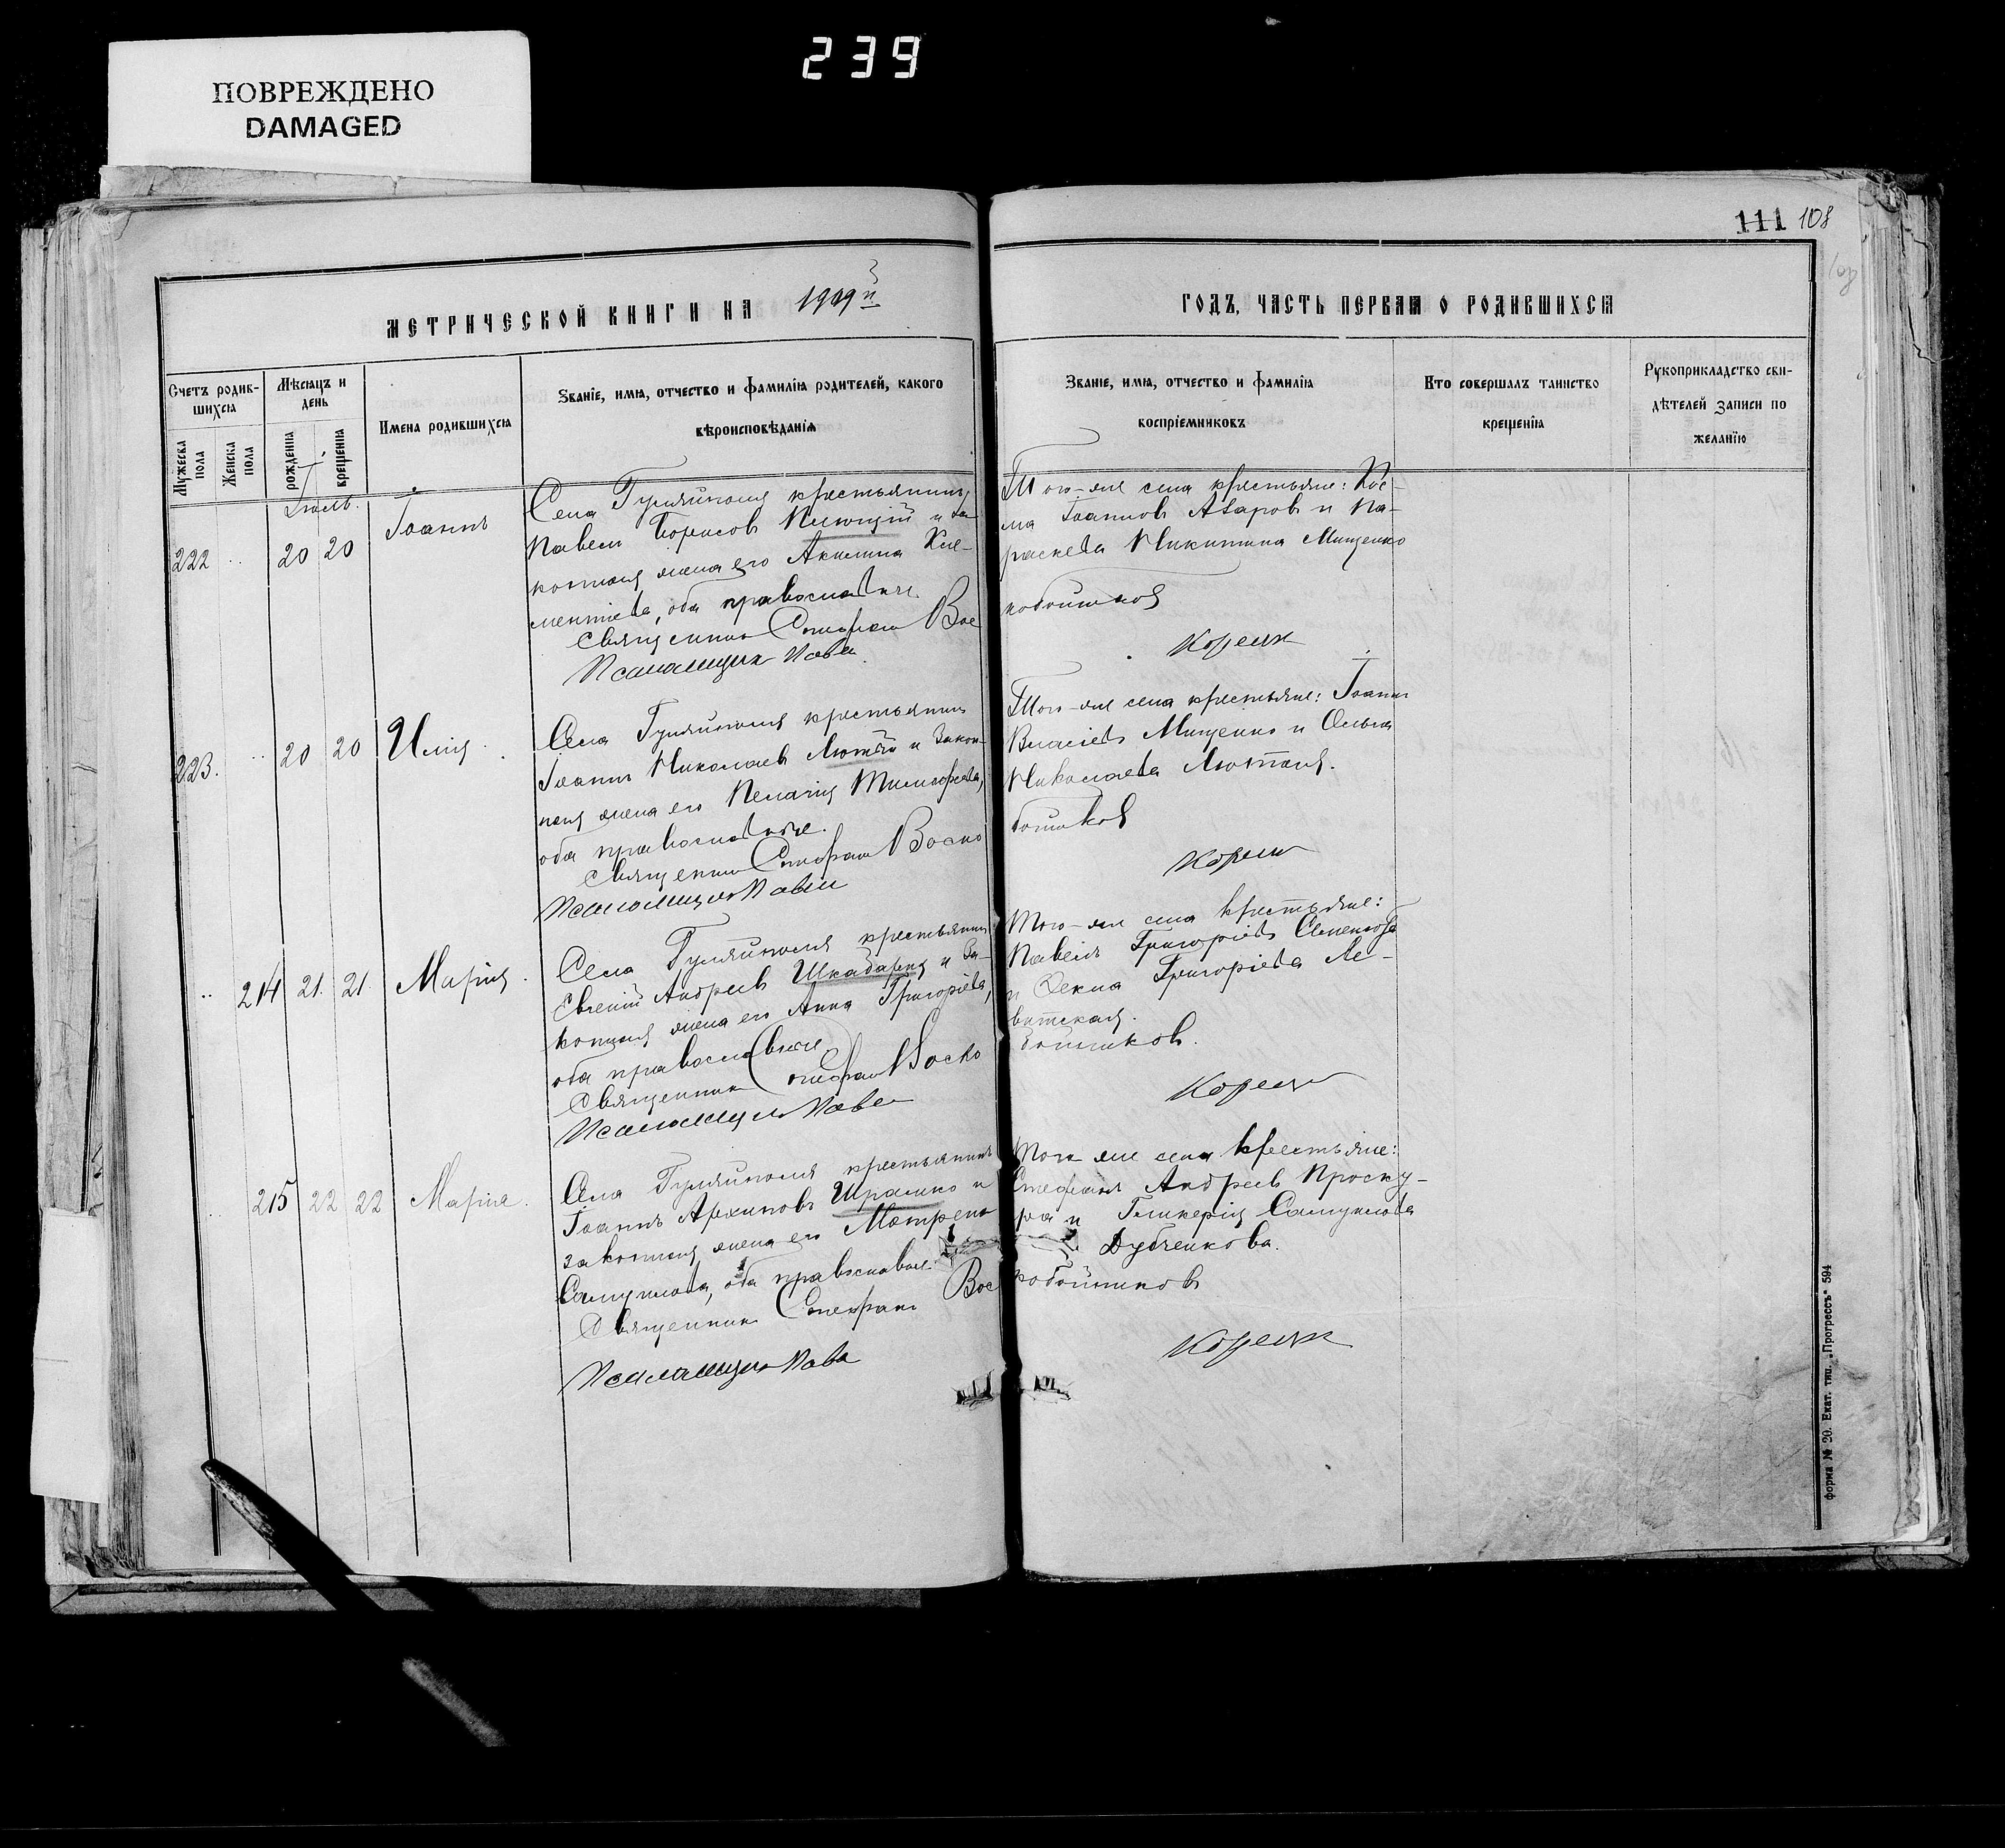 239
ПОВРЕЖДЕНО
DAMAGED
111 108
МЕТРИЧЕСКОЙ КНИГИ НА 1909й
ГОДЪ, ЧАСТЬ ПЕРВАЯ О РОДИВШИХСЯ
Счетъ родив-
шихся
Мужеска
пола
Женска
пола
Мѣсяцъ и
день
рожденія
крещенія
Имена родившихся
Званіе, имя, отчество и фамилія родителей, какого
вѣроисповѣданія
Званіе, имя, отчество и фамилія
воспріемниковъ
Кто совершалъ таинство
крещенія
Рукоприкладство сви-
дѣтелей записи по
желанію
Іюль.
222 .. 20 20 Іоаннъ
Села Гуляйполя крестьянинъ
Павелъ Борисовъ и за-
конная жена его Акилина Кле-
ментіева, оба православные.
Священникъ Стефанъ Вос
Псаломщикъ Павел
Того-же села крестьяне: Кос-
ма Іоанновъ Азаровъ и Па-
раскева Никитина Мищенко
кобойников
Корецк
223. .. 20 20 Илія
Села Гуляйполя крестьянинъ
Іоаннъ Николаевъ Лютый и закон-
ная жена его Пелагія Тимофеева,
оба православные.
Священникъ Стефанъ Воско
Псаломщикъ Павел
Того-же села крестьяне: Іоаннъ
Власіевъ Мищенко и Ольга
Николаева Лютая.
бойников
Корецк
.. 214 21. 21. Марія
Села Гуляйполя крестьянинъ
Евгеній Андреевъ Шкабарня и за-
конная жена его Анна Григоріева,
оба православные
Священникъ Стефанъ Воско
Псаломщикъ Павел
Того-же села крестьяне:
Павелъ Григоріевъ
и Фекла Григоріева Ле-
витская.
бойников.
Корецк
.. 215 22 22 Марія.
Села Гуляйполя крестьянинъ
Іоаннъ Архиповъ Шрамко и
законная жена его Матрена
Самуилова, оба православные.
Священникъ Стефанъ Вос
Псаломщикъ Павел
Того-же села крестьяне:
Стефанъ Андреевъ Проску-
ра и Гликерія Самуилова
Дубченкова.
кобойниковъ
Корецк
Форма № 20. Екат. тип. „Прогрессъ" 594